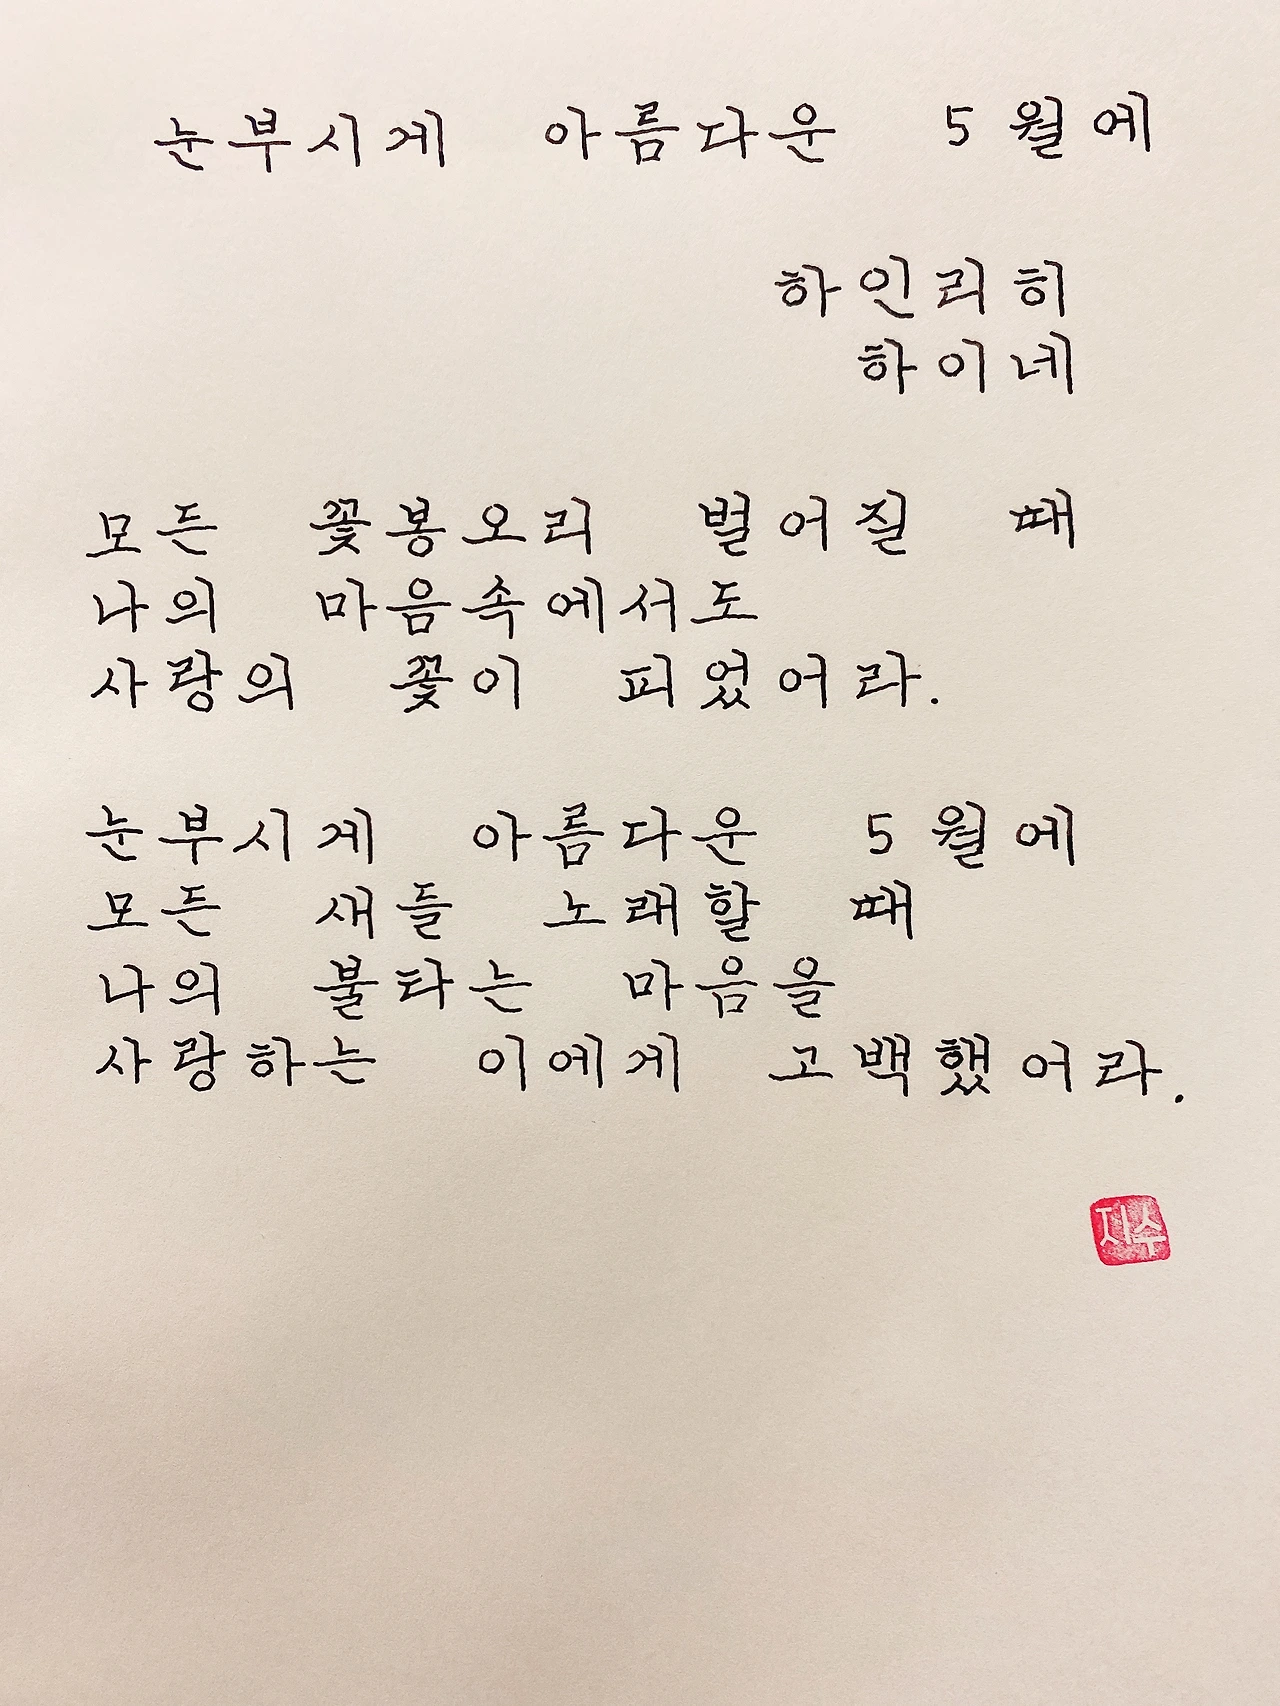 눈부시게 아름다운 5월에
하인리히
하이네
모든 꽃봉오리 벌어질 때
나의 마음속에서도
사랑의 꽃이 피었어라.
눈부시게 아름다운 5월에
모든 새들 노래할 때
나의 불타는 마음을
사랑하는 이에게 고백했어라.
지수